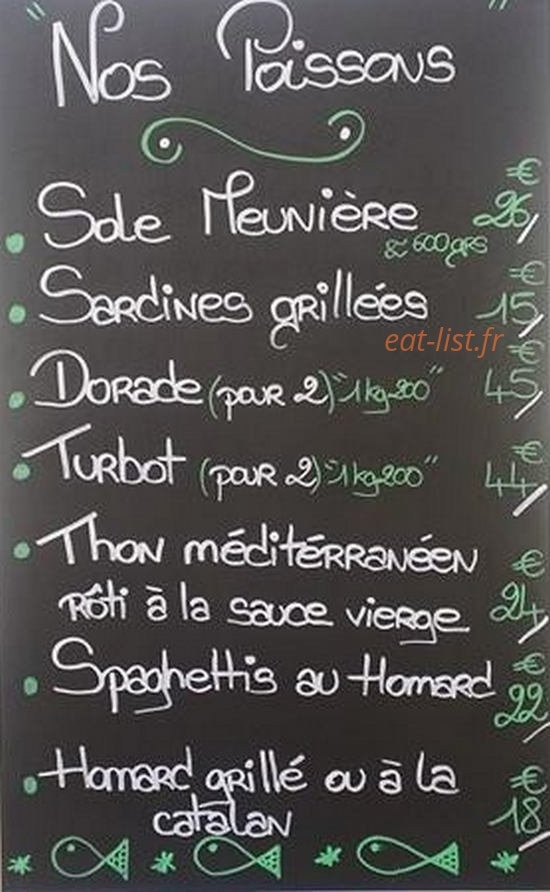 " Nos Poissons "
Sole Meunière € 26,
≈ 600 grs
Sardines grillées € 15,
eat-list.fr
Dorade (pour 2) "1kg200" € 45,
Turbot (pour 2) "1kg200" € 44,
Thon méditérranéen €
rôti à la sauce vierge 24,
Spaghettis au Homard € 22,
Homard grillé ou à la €
catalan 18,